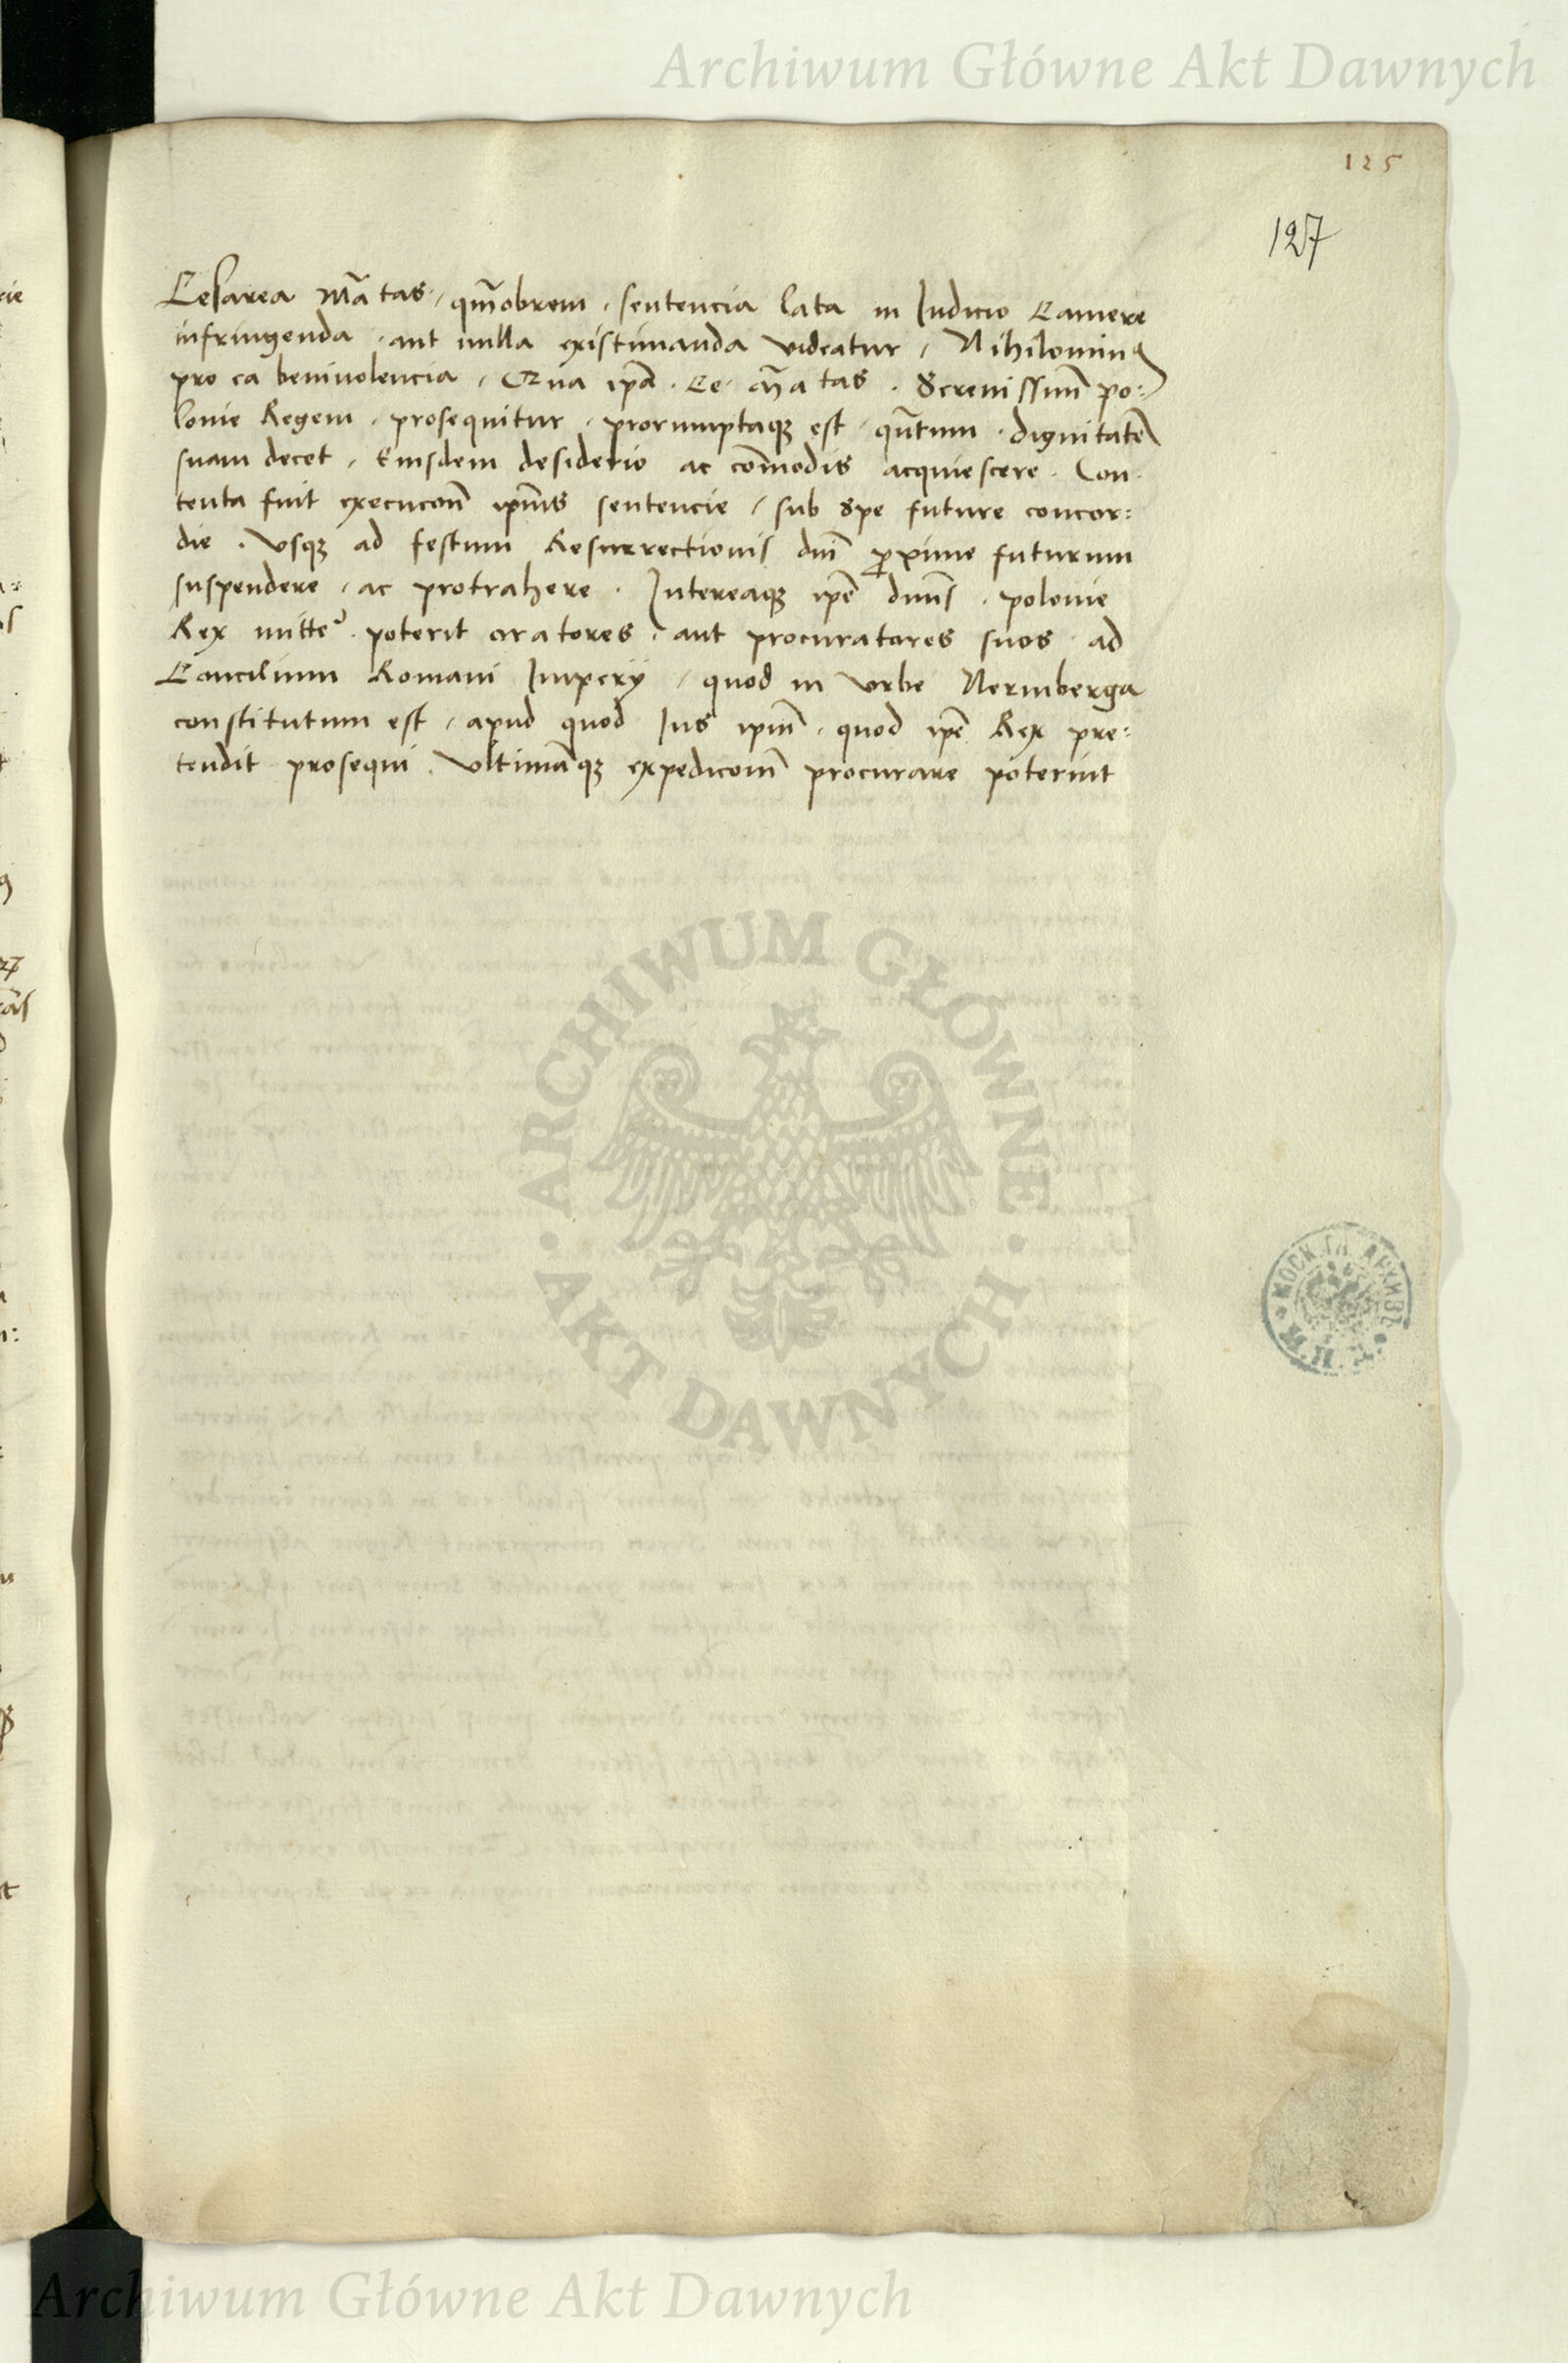 Archiwum Główne Akt Dawnych
125
127
Cesarea Mãtas, qm̃obrem, sentencia lata in Iudicio Camere
infringenda, aut nulla existimanda videatur, Nihilominꝰ
pro ea benivolencia, Qua ip̃a. Ce. M̃atas. Serenissim̃ po:
lonie Regem, prosequitur, prorumptaqꝫ est, qñtum dignitatẽ
suam decet, Eiusdem desiderio ac com̃odis acquiescere. Con
tenta fuit execucoñ ip̃ius sentencie, sub spe future concor:
die. Vsqꝫ ad festum Resurrectionis dñi ꝓxime futurum
suspendere, ac protrahere. Intereaqꝫ ip̃e dim̃s. polonie
Rex mitte᷑. poterit oratores, aut procuratores suos ad
Concilium Romani Imperÿ, quod in Vrbe Nermberga
constitutum est, apud quod Ius ip̃m, quod ip̃e Rex pre:
tendit prosequi. Vltimãqꝫ expedicom̃ procurare poterint
ARCHIWUM GŁÓWNE
AKT DAWNYCH
МОСК. ГЛ. АРХИВЪ
М. И. Д.
Archiwum Główne Akt Dawnych